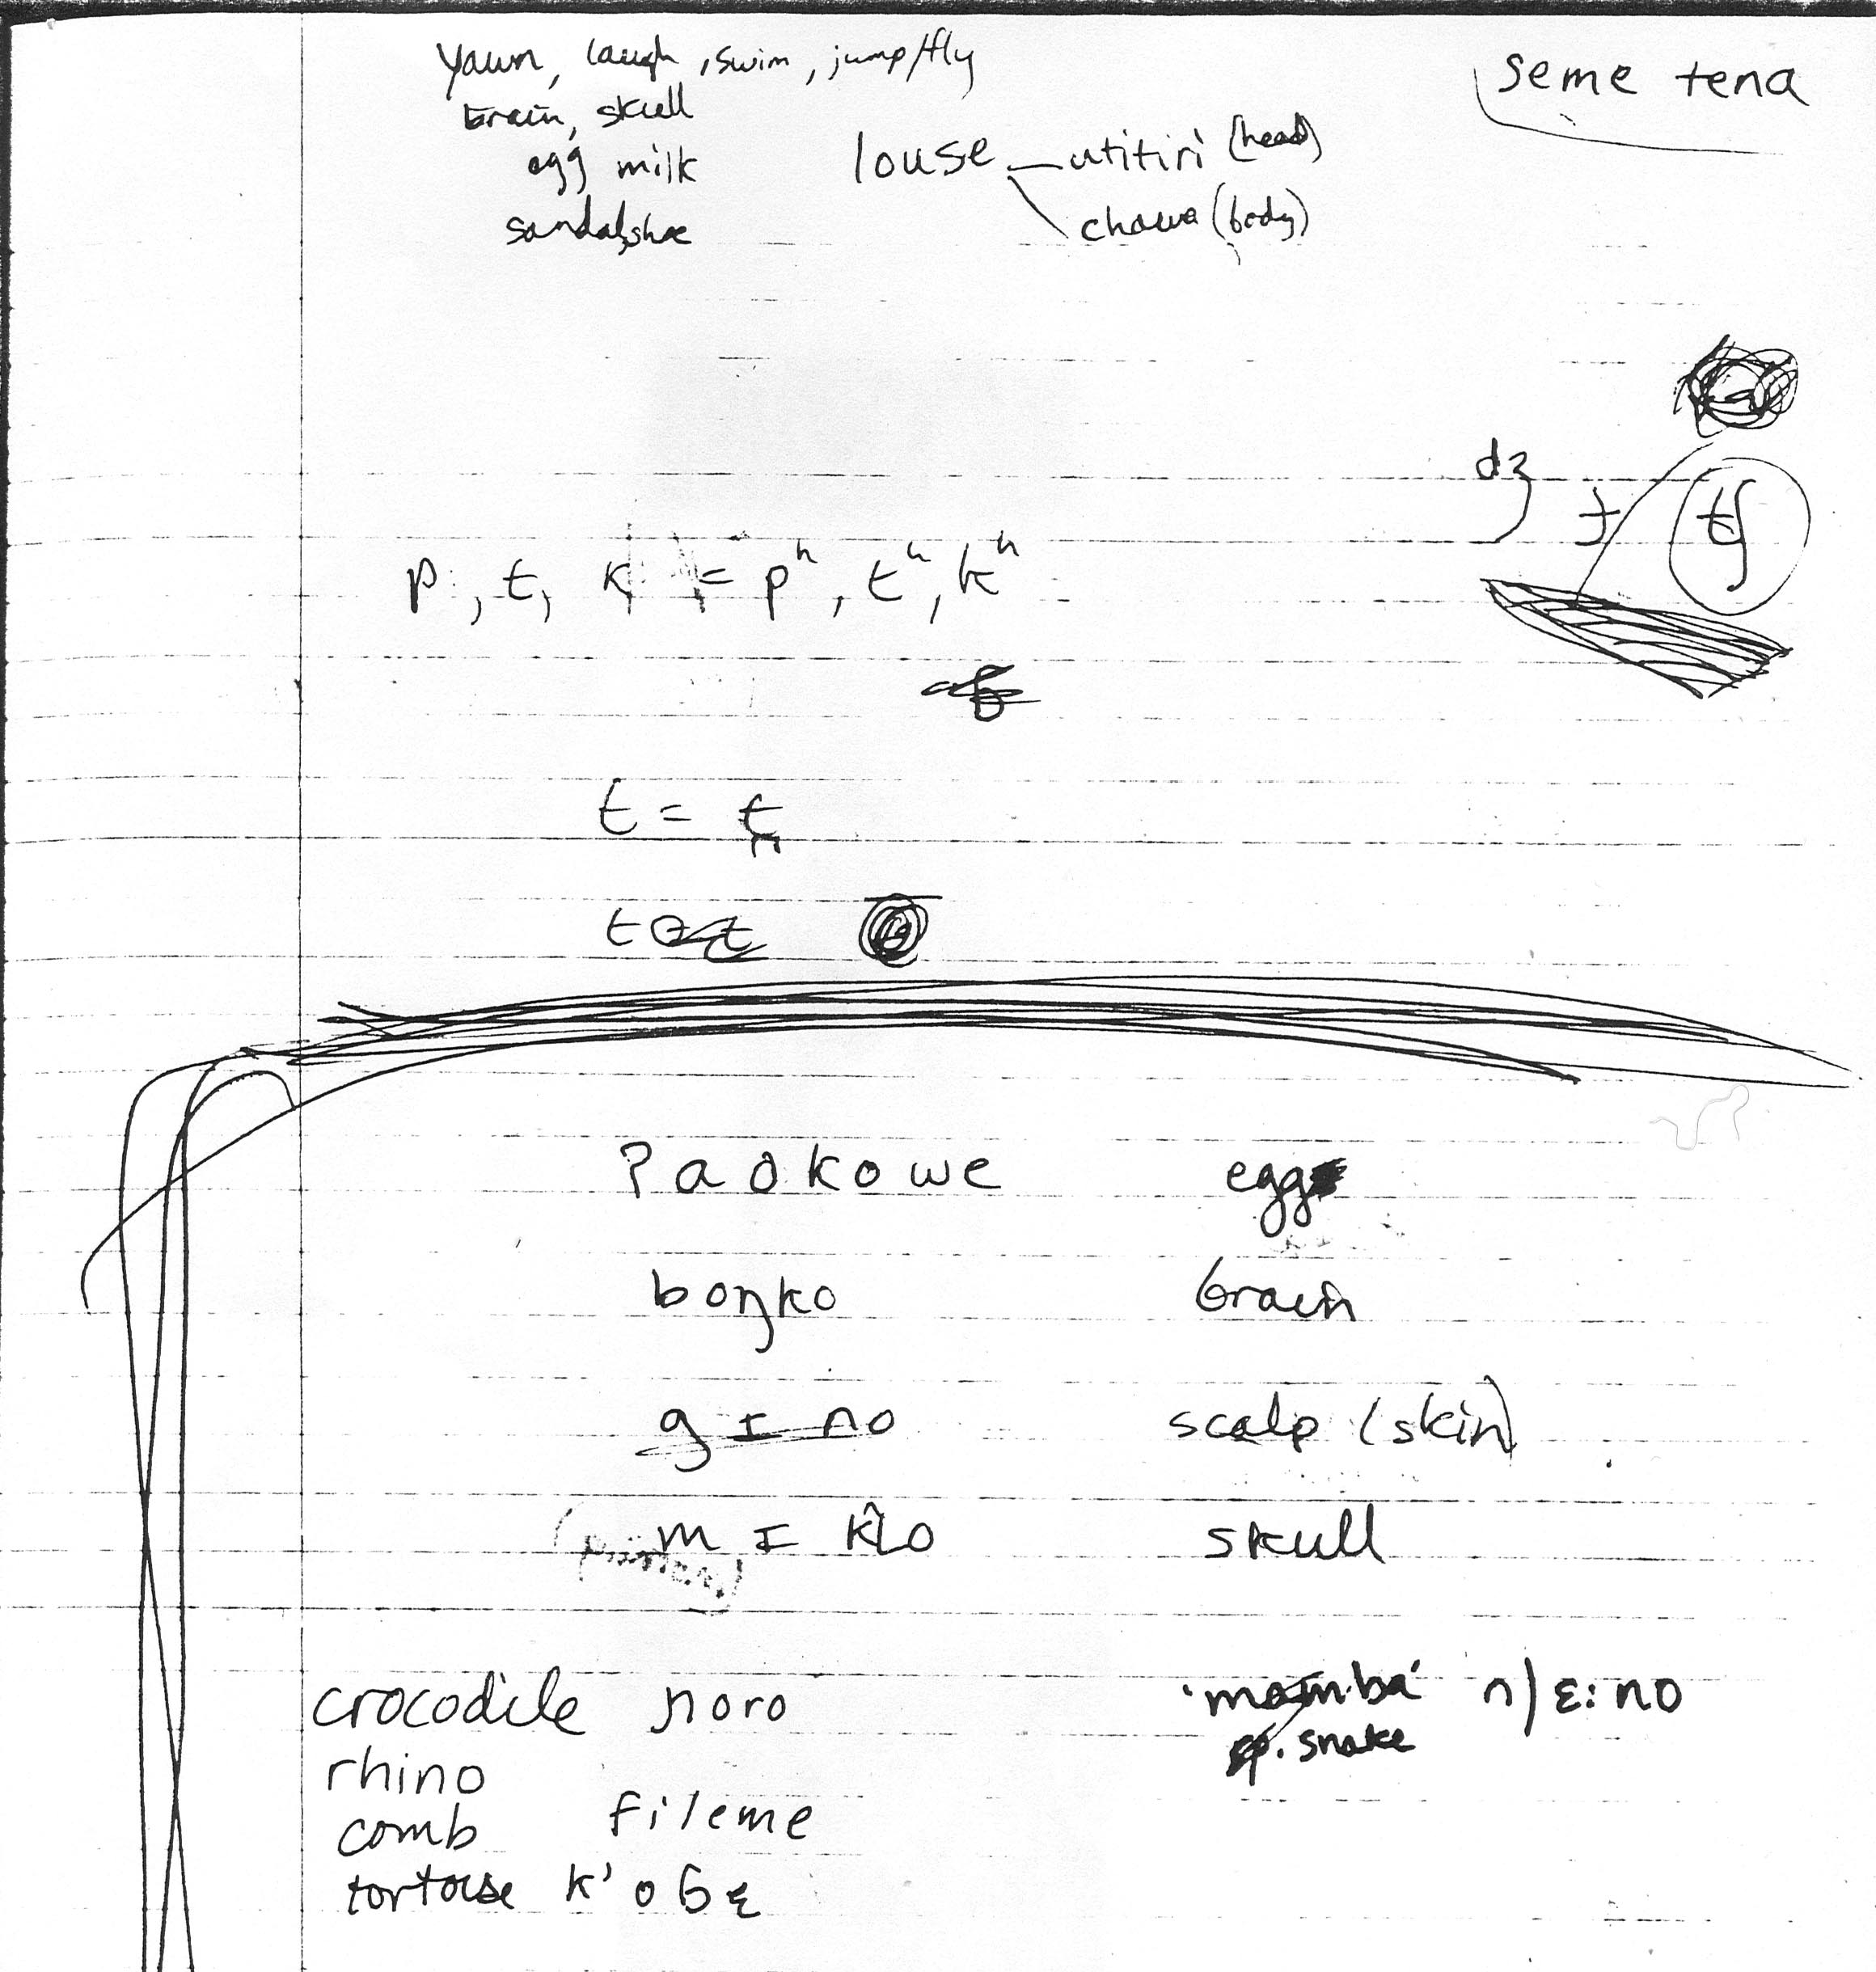 yawn, laugh, swim, jump/fly
brain, skull
egg milk
sandal, shoe
seme tena
louse utitiri (head)
chawa (body)
dʒ ɟ tʃ
p, t, k = pʰ, tʰ, kʰ
t = t̪
t
ʔaokowe egg
boŋko brain
gɪno scalp (skin)
mɪk'lo skull
crocodile ɲoro
rhino
comb fileme
tortoise k'oɓɛ
'mamba' n|ɛ:no
sp. snake